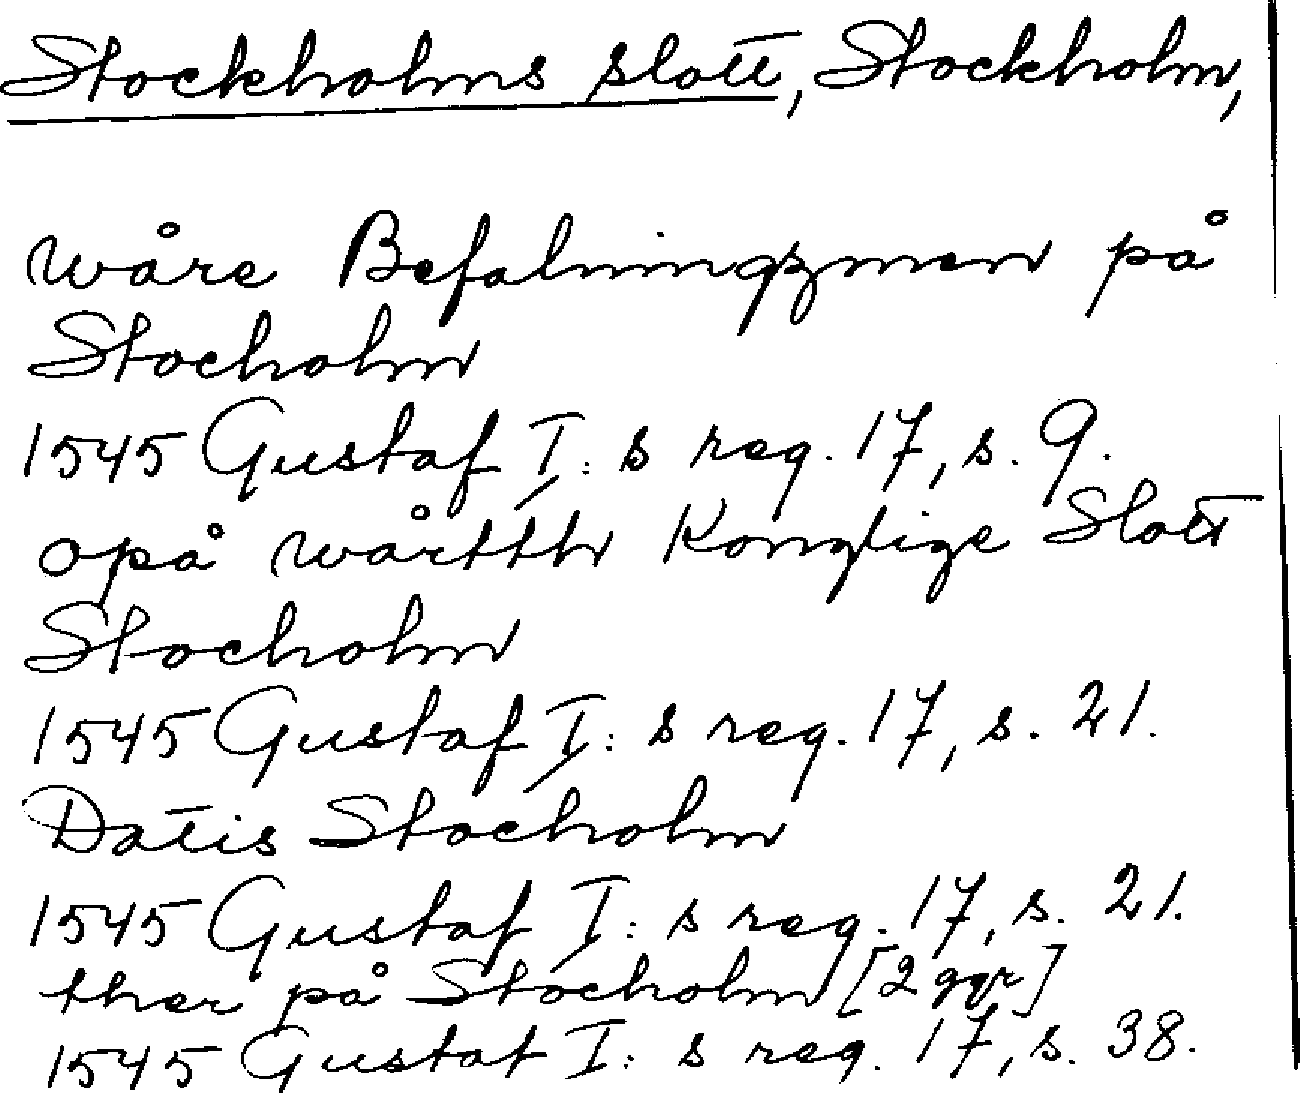 Stockholms slott, Stockholm,
wåre Befalningzmen på
Stocholm
1545 Gustaf I: s reg. 17, s. 9.
opå wårtth Konglige Slott
Stocholm
1545 Gustaf I: s reg. 17, s. 21.
Datis Stocholm
1545 Gustaf I: s reg. 17, s. 21.
ther på Stocholm [2 ggr]
1545 Gustaf I: s reg. 17, s. 38.